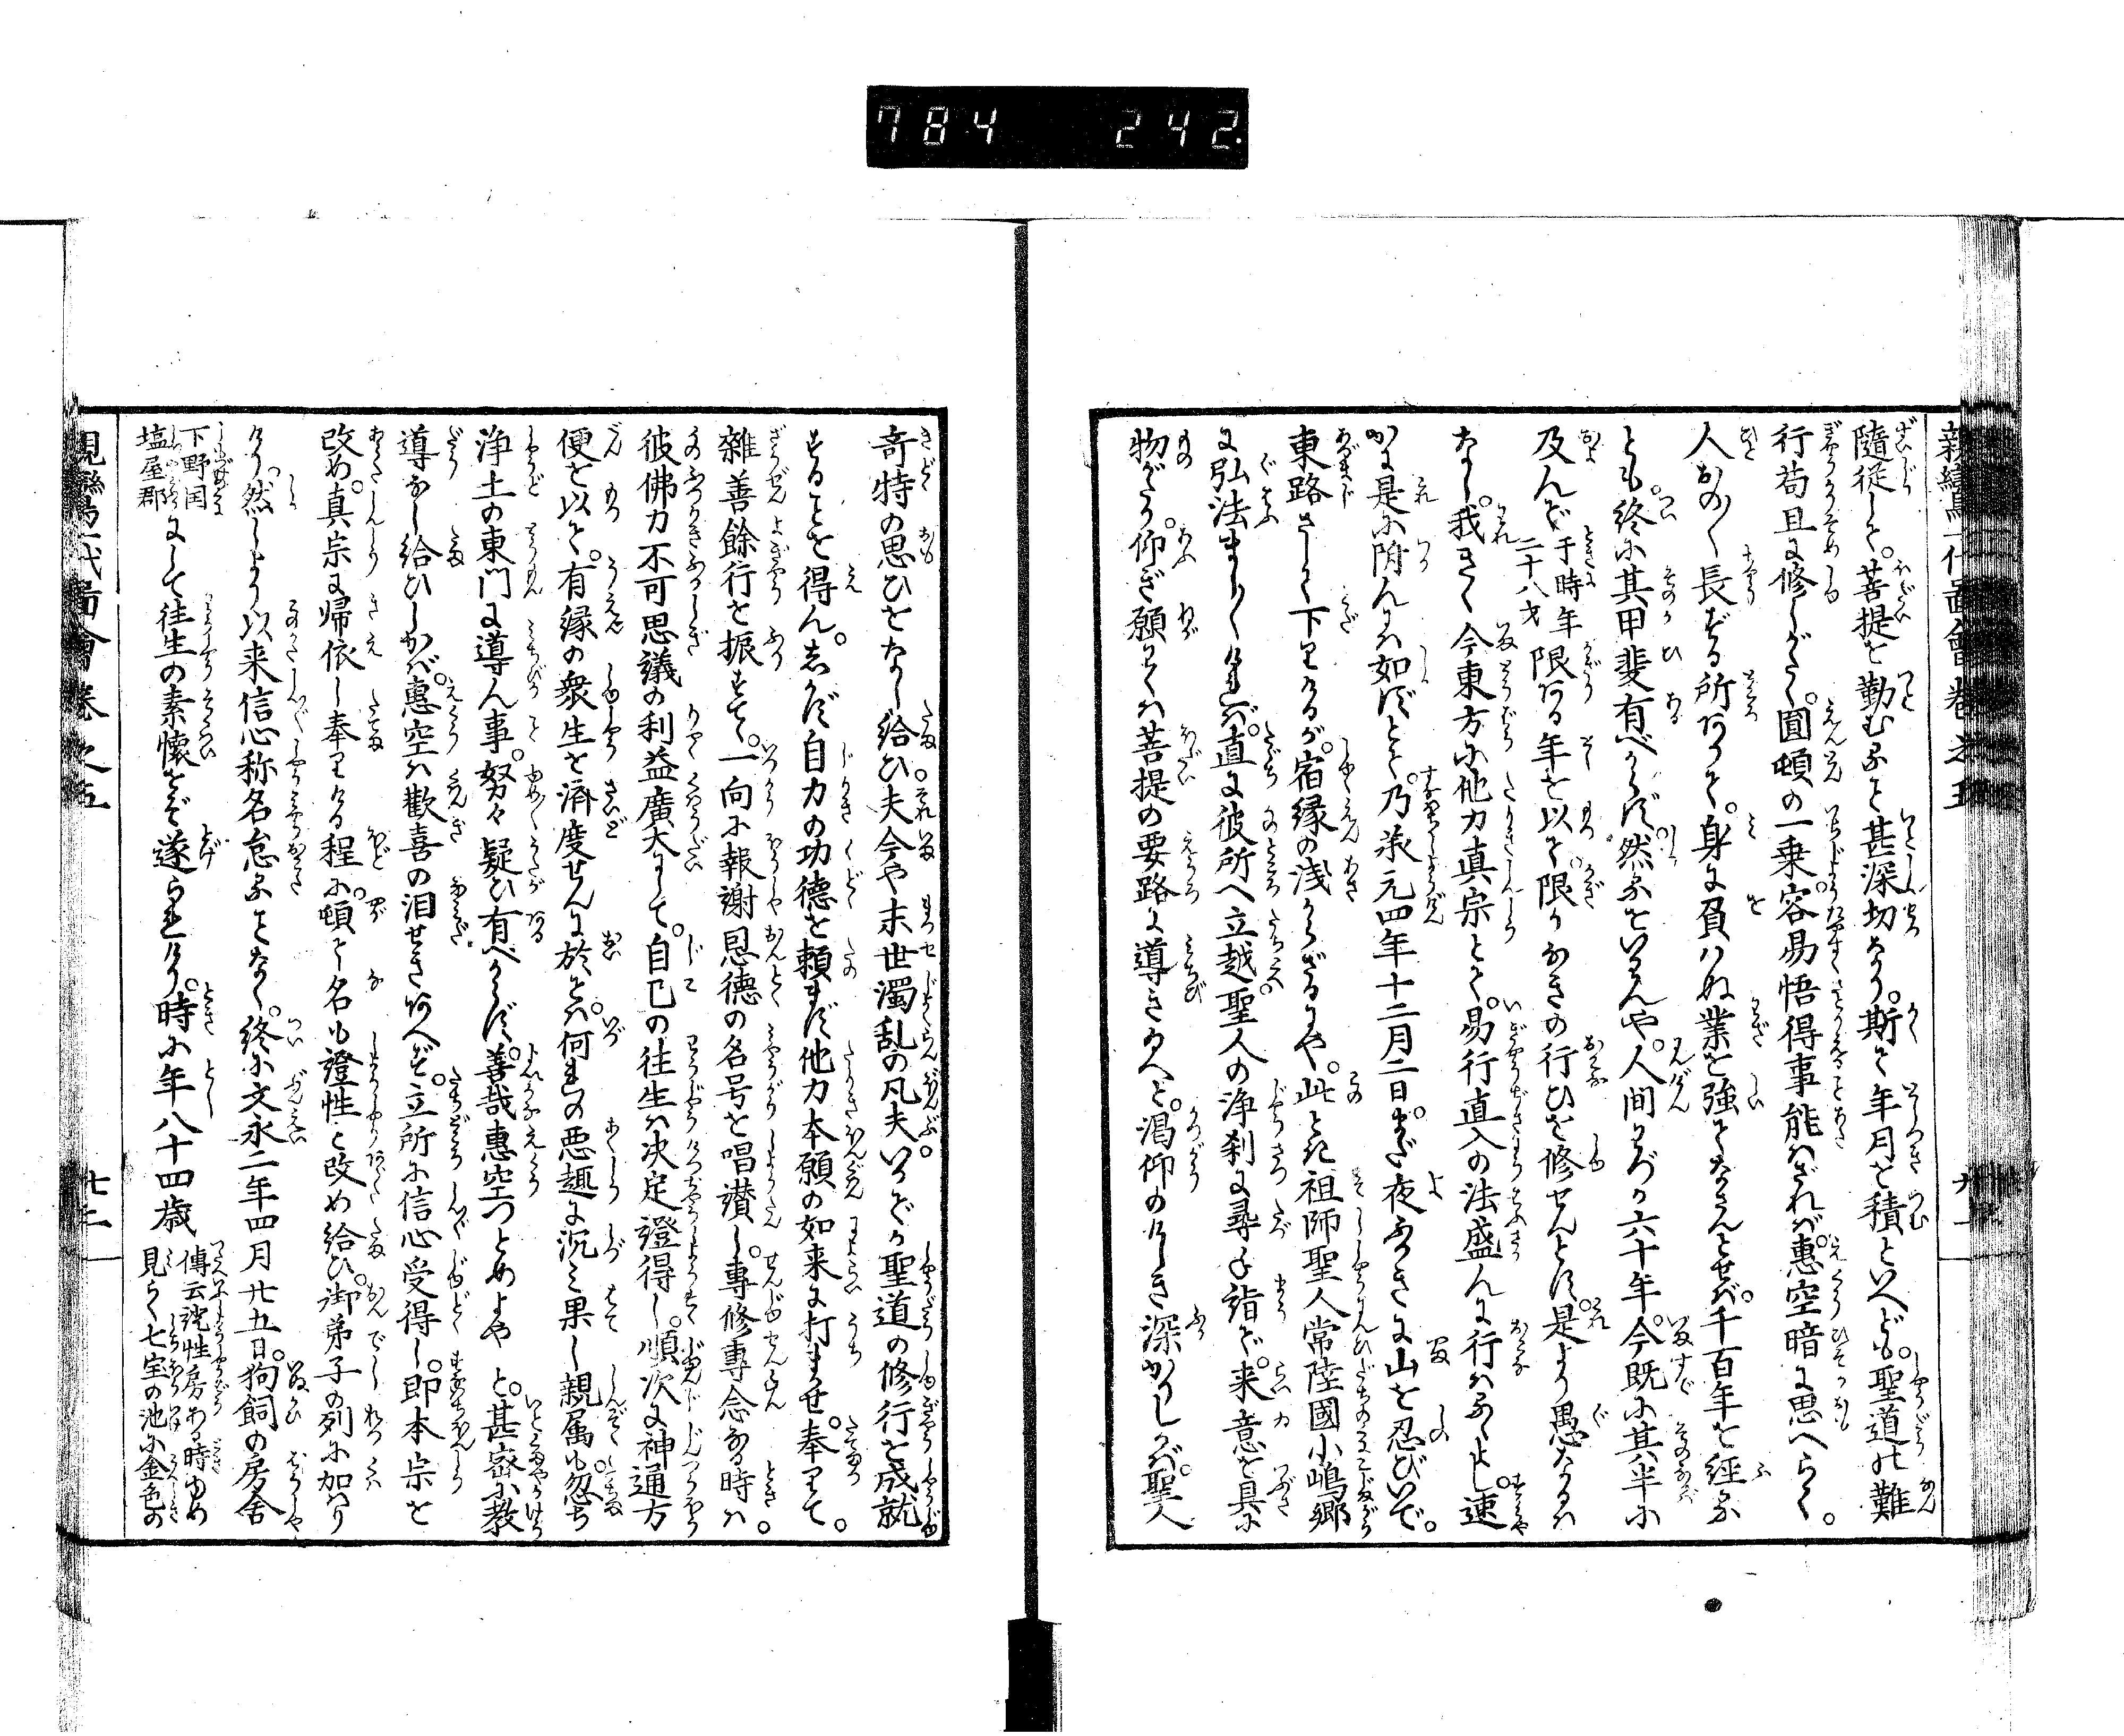 784 242.
親鸞一代圖會卷之五
隨従して。菩提を勤むること甚深切なり。斯て年月を積といへども。聖道の難
行苟且に修しがたく。圓頓の一乗。容易悟得事能はざれば。惠空暗に思へらく。
人おの〱長ずる所ありて。身に負はぬ業を強てなさんとせば。千百年を経る
とも。終に其甲斐有べからず。然るをいはんや。人間わづか六十年。今既に其半に
及んで 于時年二十八才 限ある年を以て。限りなきの行ひを修せんとす。是より愚なるは
なし。我きく今東方に他力真宗とて。易行直入の法盛んに行はるゝよし。速
かに是に附んには如ずとて。乃承元四年十二月二日。まだ夜ふかきに山を忍びいで。
東路さして下りけるが。宿縁の浅からざるにや。此とき祖師聖人常陸國小嶋郷
に弘法まし〱ければ。直に彼所へ立越。聖人の浄刹に尋ね詣で。来意を具に
物がたり。仰ぎ願はくは菩提の要路に導き給へと。渇仰のけしき深かりしかば。聖人
奇特の思ひをなし給ひ。夫今や末世濁乱の凡夫。いかでか聖道の修行を成就
することを得ん。しかず自力の功徳を頼まず他力本願の如来に打まかせ奉りて。
雑善餘行を振すて。一向に報謝恩徳の名号を唱讃し。専修専念なる時は。
彼佛力不可思議の利益廣大にして。自己の往生は決定證得し。順次に神通方
便を以て。有縁の衆生を済度せんに於をは。何れの悪趣に沉み果し親属も。忽ち
浄土の東門に導ん事。努々疑ひ有べからず。善哉惠空つとめよや と。甚密に教
導なし給ひしかば。惠空は歓喜の泪せきあへず。立所に信心受得し。即本宗を
改め。真宗に帰依し奉りける程に。頓て名も證性と改め給ひ。御弟子の列に加はり
けり。然しより以来信心称名怠ることなく。終に文永二年四月廿五日。狗飼の房舎
下野国塩屋郡 にして往生の素懐をぞ遂られけり。時に年八十四歳 傳云證性房ある時ゆめ見らく七宝の池に金色の
親鸞一代圖會卷之五 廿二